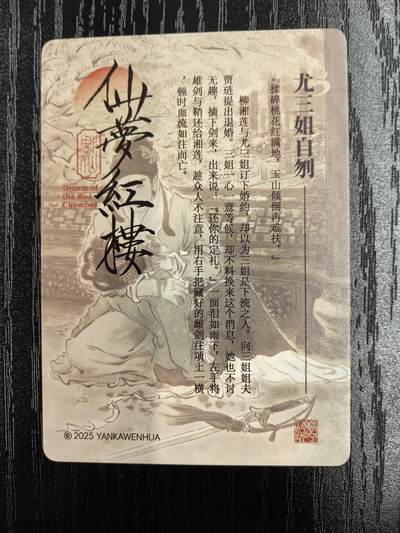 尤三姐自刎
“揉碎桃花红满地,玉山倾倒再难扶。”
柳湘莲与尤三姐订下婚约,却以为三姐是下流之人,向三姐姐夫
贾琏提出退婚。三姐一心一意等候,却不料换来这个消息,她也不讨
无趣,摘下剑来,出来说:“还你的定礼。”一面泪如雨下,左手将
雄剑与鞘还给湘莲,趁众人不注意,用右手把藏好的雌剑往项上一横
,顿时血流如注而亡。
仙夢紅樓
Dream of
the Red
Chamber
© 2025 YANKAWENHUA